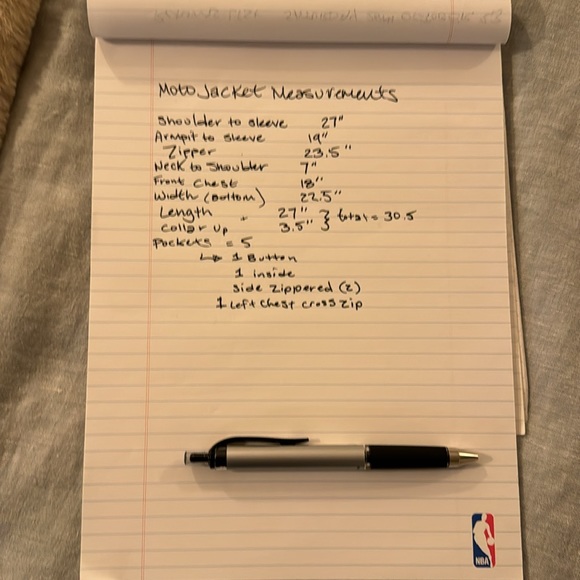 Moto Jacket Measurements
Shoulder to sleeve 27"
Armpit to sleeve 19"
Zipper 23.5"
Neck to Shoulder 7"
Front Chest 18"
Width (Bottom) 22.5"
Length 27" } total = 30.5
Collar Up 3.5"
Pockets = 5
↳ 1 Button
1 inside
side zippered (2)
1 Left Chest cross zip
NBA